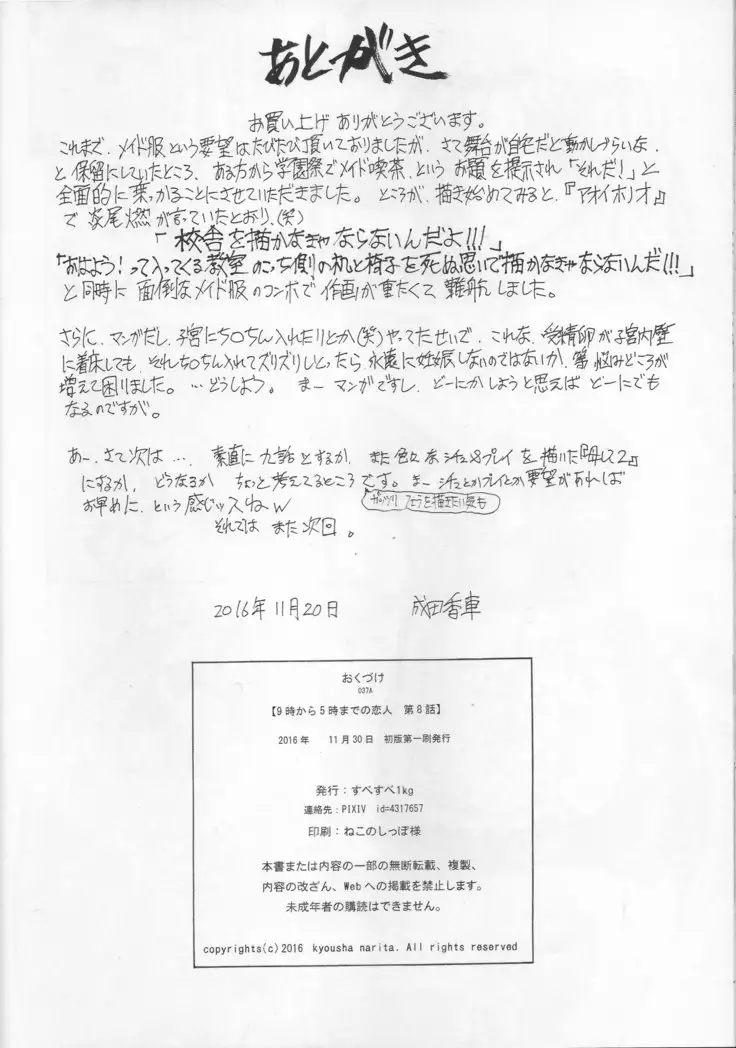 あとがき
お買い上げ ありがとうございます。
これまで、メイド服という要望はたびたび頂いておりましたが、さて舞台が自宅だと動かしづらいな、
と保留にしていたところ、ある方から学園祭でメイド喫茶、という お題を提示され「それだ!」と
全面的に乗っかることにさせていただきました。 ところが、描き始めてみると、『アオイホノオ』
で 炎尾燃が言っていたとおり、(笑)
「校舎を描かなきゃならないんだよ!!!」
「おはよう!って入ってくる教室のこっち側の机と椅子を死ぬ思いで描かなきゃならないんだ!!!」
と同時に 面倒なメイド服のコンボで 作画が重たくて 難航しました。
さらに、マンガだし、子宮にち○ちん入れたりとか(笑)やってたせいで、これな、受精卵が子宮内壁
に着床しても、それち○ちん入れてズリズリしとったら 永遠に妊娠しないのではないか、等 悩みどころが
増えて困りました。 …どうしよう。 まー マンガですし、どーにかしようと思えば どーにでも
なるのですが。
あー、さて次は…、 素直に九話とするか、また色々なシチュ&プレイを描いた『母して2』
にするか、どうなるか ちょっと考えてるところです。 まー シチュとかプレイとか要望があれば
お早めに、という感じッスねw
それでは また次回。
2016年11月20日 成田香車
おくづけ
037A
【9時から5時までの恋人 第8話】
2016年 11月30日 初版第一刷発行
発行:すべすべ1kg
連絡先:PIXIV id=4317657
印刷:ねこのしっぽ様
本書または内容の一部の無断転載、複製、
内容の改ざん、Webへの掲載を禁止します。
未成年者の購読はできません。
copyrights(c)2016 kyousha narita. All rights reserved